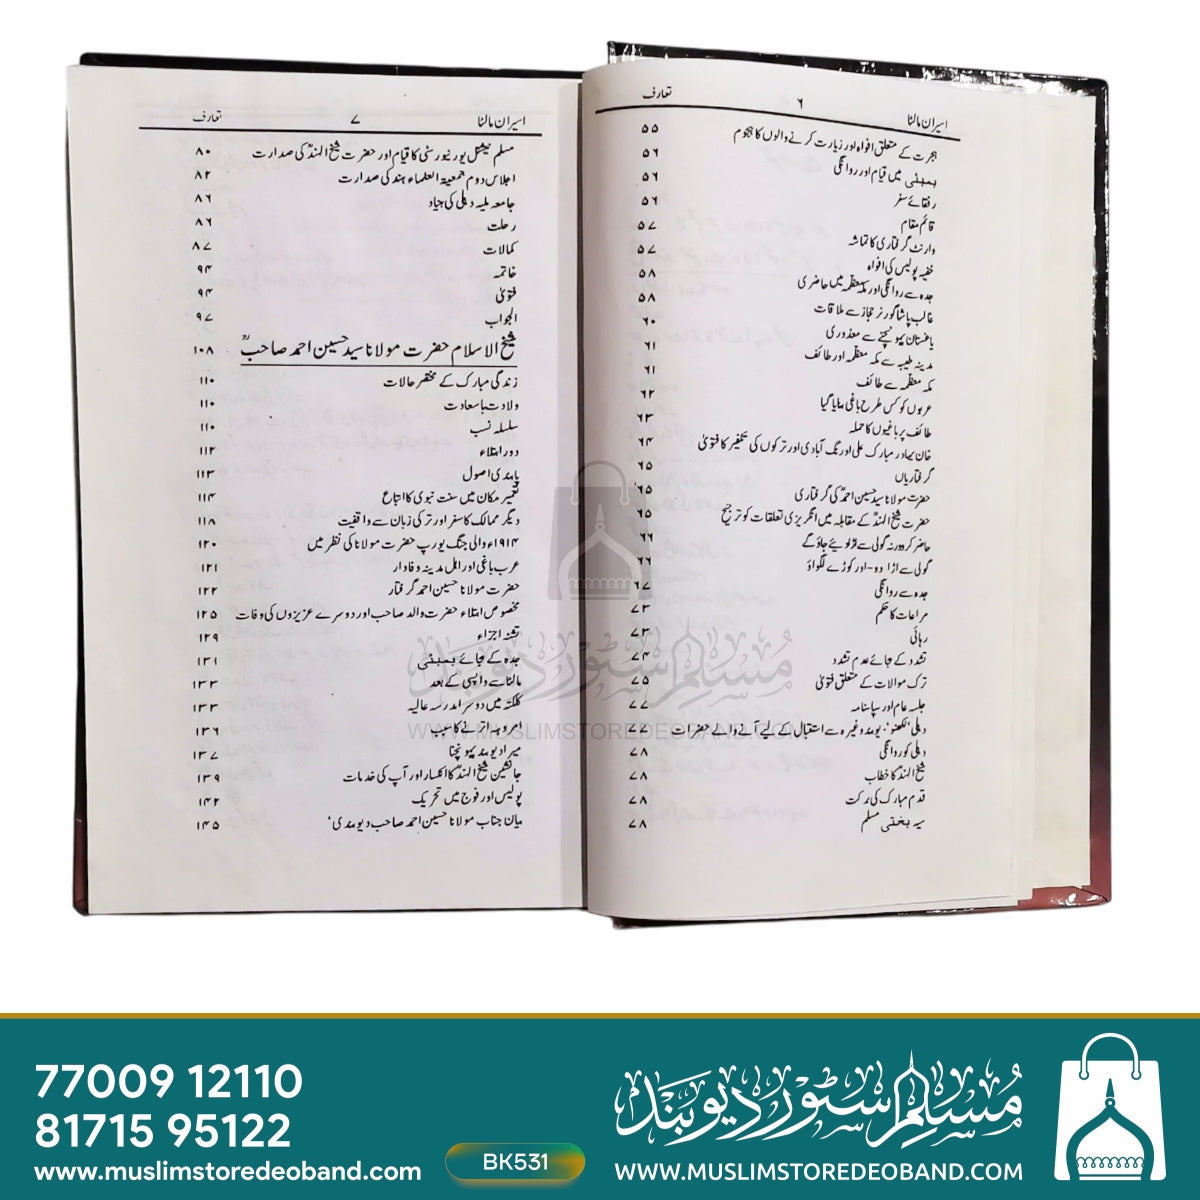 اسیران مالٹا ۶ تعارف
ہجرت کے متعلق افواہ اور زیارت کرنے والوں کا ہجوم ۵۵
بمبئی میں قیام اور روانگی ۵۶
رفقائے سفر ۵۶
قائم مقام ۵۶
وارنٹ گرفتاری کا تماشہ ۵۷
خفیہ پولیس کی افواہ ۵۷
جدہ سے روانگی اور مکہ معظمہ میں حاضری ۵۸
غالب پاشا گورنر حجاز سے ملاقات ۵۸
یاغستان پہونچنے سے معذوری ۶۰
مدینہ طیبہ سے مکہ معظمہ اور طائف ۶۱
مکہ معظمہ سے طائف ۶۱
عربوں کو کس طرح باغی بنایا گیا ۶۲
طائف پر باغیوں کا حملہ ۶۳
خان بہادر مبارک علی اورنگ آبادی اور ترکوں کی تکفیر کا فتویٰ ۶۴
گرفتاریاں ۶۵
حضرت مولانا سید حسین احمد کی گرفتاری ۶۵
حضرت شیخ الہند کے مقابلہ میں انگریزی تعلقات کو ترجیح ۶۵
حاضر کرو ورنہ گولی سے اڑا دیئے جاؤ گے ۶۶
گولی سے اڑا دو - اور کوڑے لگواؤ ۶۶
جدہ سے روانگی ۶۷
مراعات کا حکم ۷۳
رہائی ۷۳
تشدد کے بجائے عدم تشدد ۷۴
ترک موالات کے متعلق فتویٰ ۷۵
جلسہ عام اور سپاسنامہ ۷۷
دہلی، لکھنؤ، دیوبند وغیرہ سے استقبال کے لیے آنے والے حضرات ۷۷
دہلی کو روانگی ۷۸
شیخ الہند کا خطاب ۷۸
قدم مبارک کی برکت ۷۸
سیہ بختی مسلم ۷۸
اسیران مالٹا ۷ تعارف
مسلم نیشنل یونیورسٹی کا قیام اور حضرت شیخ الہند کی صدارت ۸۰
اجلاس دوم جمعیۃ العلماء ہند کی صدارت ۸۲
جامعہ ملیہ دہلی کی بنیاد ۸۶
رحلت ۸۶
کمالات ۸۷
خاتمہ ۹۴
فتویٰ ۹۴
الجواب ۹۷
شیخ الاسلام حضرت مولانا سید حسین احمد صاحبؒ ۱۰۸
زندگی مبارک کے مختصر حالات ۱۱۰
ولادت باسعادت ۱۱۰
سلسلہ نسب ۱۱۰
دور ابتلاء ۱۱۲
پابندی اصول ۱۱۳
تعمیر مکان میں سنت نبوی کا اتباع ۱۱۴
دیگر ممالک کا سفر اور ترکی زبان سے واقفیت ۱۱۸
۱۹۱۴ء والی جنگ یورپ حضرت مولانا کی نظر میں ۱۲۰
عرب باغی اور اہل مدینہ وفادار ۱۲۱
حضرت مولانا حسین احمد گرفتار ۱۲۲
مخصوص ابتلاء حضرت والد صاحب اور دوسرے عزیزوں کی وفات ۱۲۵
تشنہ اجزاء ۱۲۹
جدہ کے بجائے بمبئی ۱۳۱
مالٹا سے واپسی کے بعد ۱۳۳
کلکتہ میں دوسرا مدرسہ عالیہ ۱۳۳
امروہہ اترانے کا سبب ۱۳۶
میرا دیوبند پہونچنا ۱۳۷
جانشین شیخ الہند کا انکسار اور آپ کی خدمات ۱۳۹
پولیس اور فوج میں تحریک ۱۴۲
بیان جناب مولانا حسین احمد صاحب دیوبندی، ۱۴۵
مسلم سٹور دیوبند
WWW.MUSLIMSTOREDEOBAND.COM
77009 12110
81715 95122
www.muslimstoredeoband.com
BK531
مسلم سٹور دیوبند
WWW.MUSLIMSTOREDEOBAND.COM